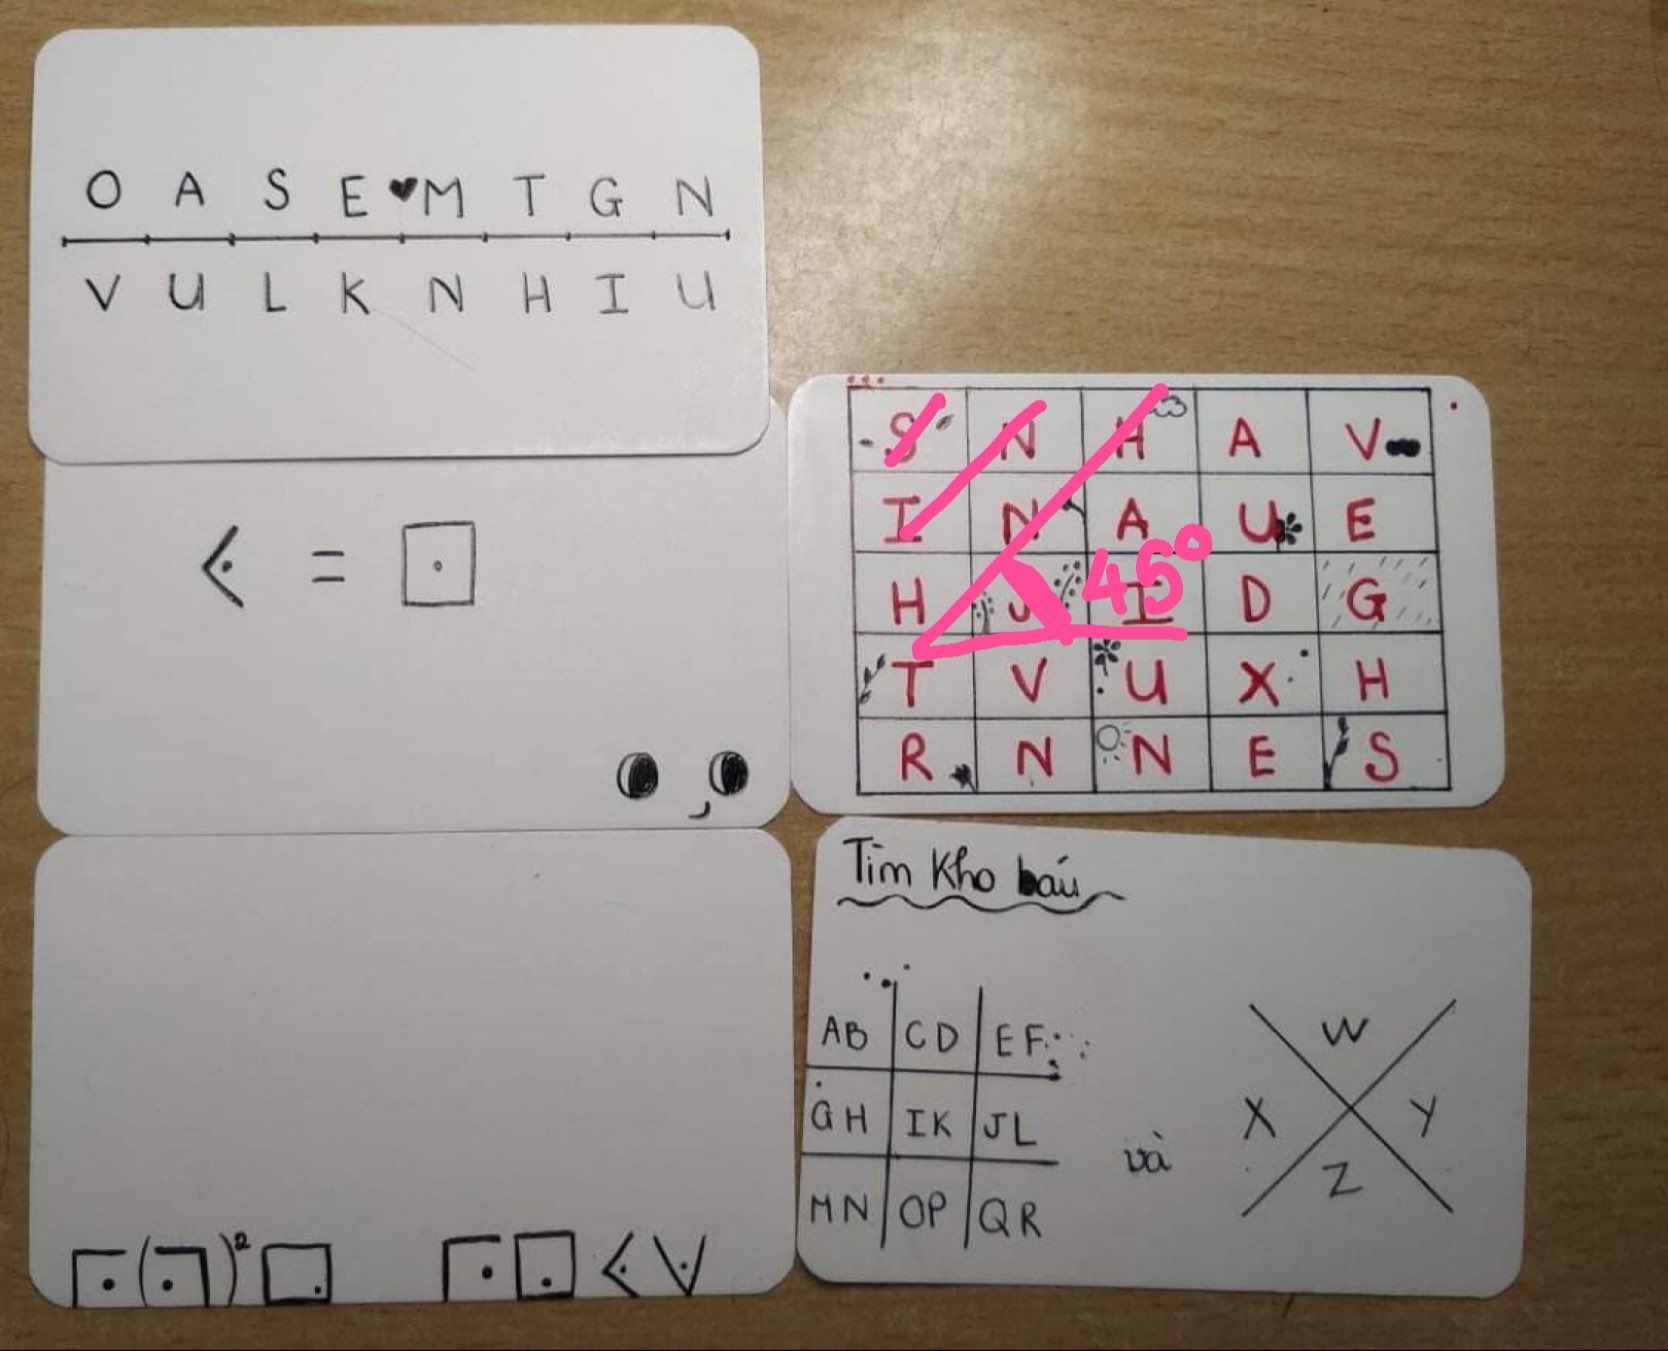 O A S E ♥ M T G N
V U L K N H I U
< = □
S N H A V
I N A U E
H J I D G
T V U X H
R N N E S
45°
Tìm Kho báu
AB CD EF
GH IK JL
MN OP QR
và
W
X Y
Z
( )²